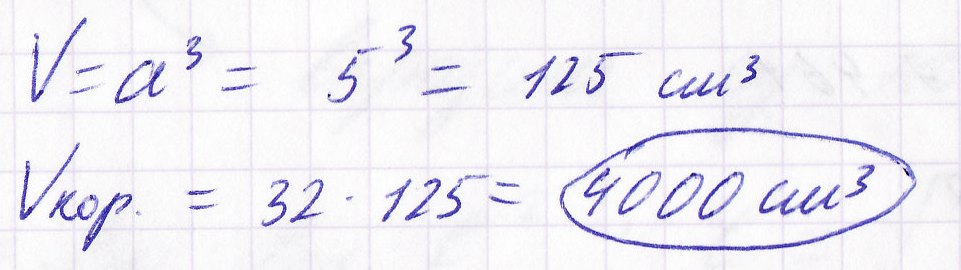 V = a³ = 5³ = 125 см³
Vкор. = 32 · 125 = 4000 см³